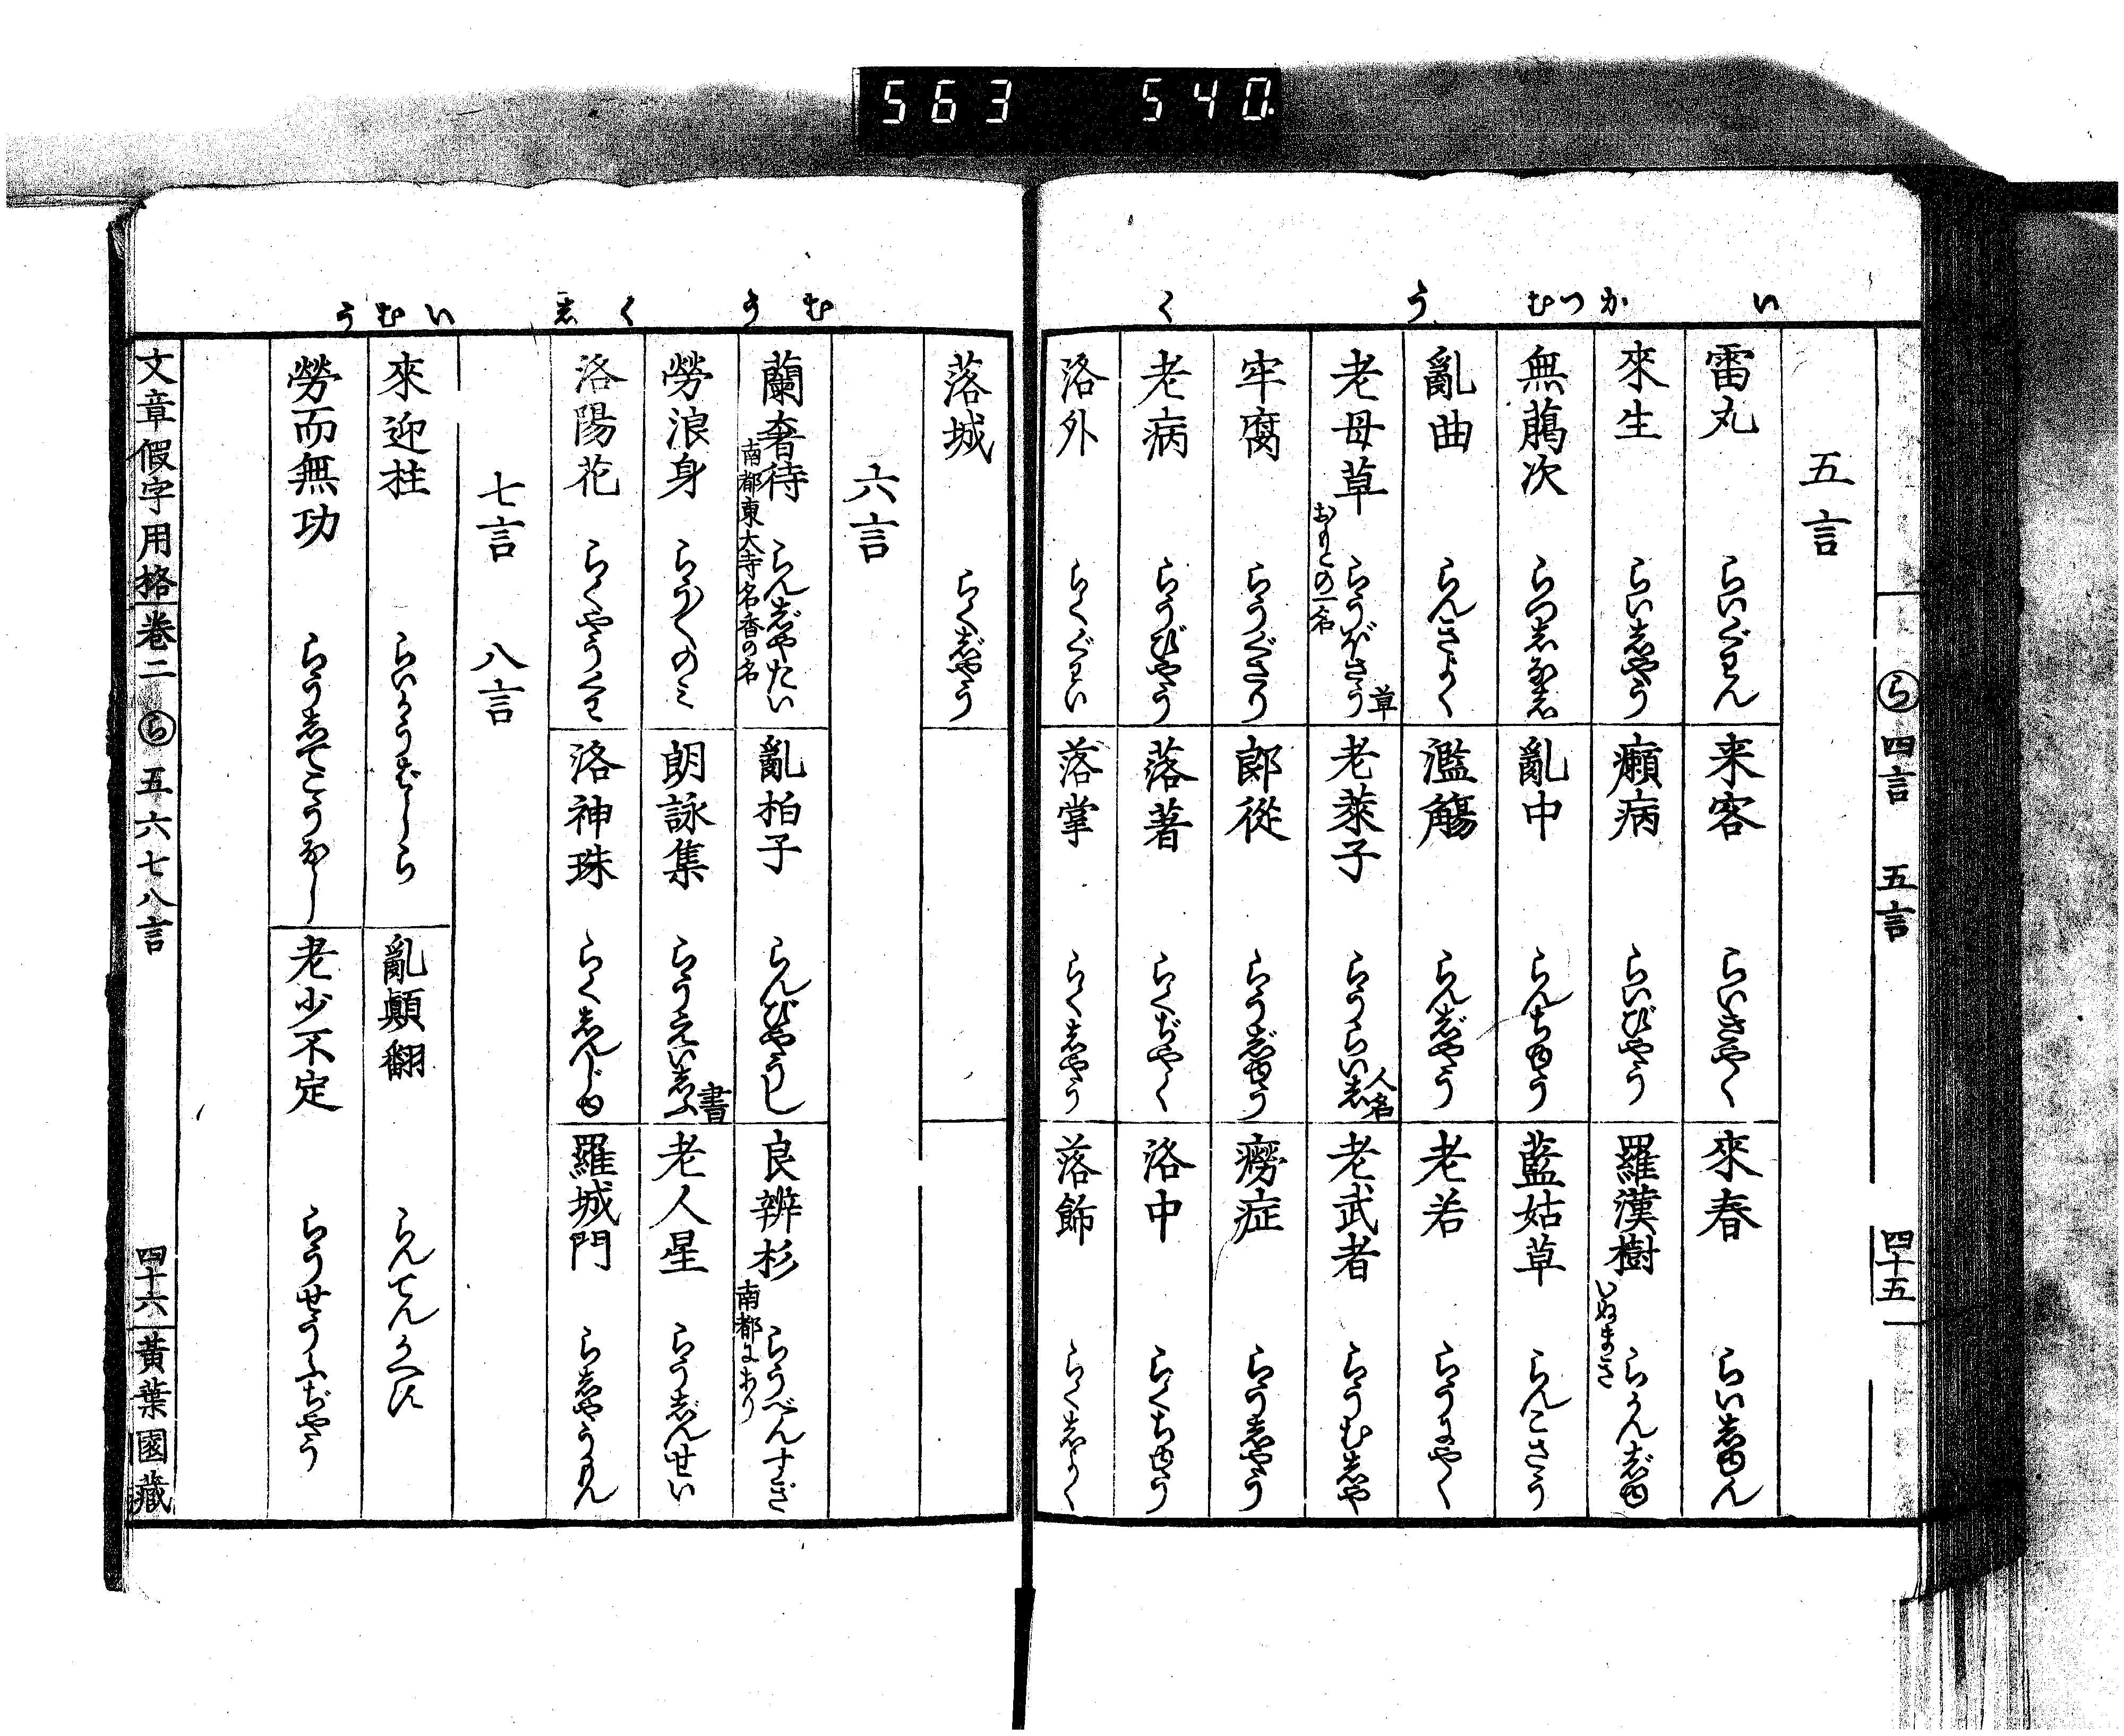 563 540
い
か つ む
う
く
ら 四言 五言 四十五
五言
雷丸 らいぐわん 来客 らいきやく 來春 らいしゆん
來生 らいしやう 癩病 らいびやう 羅漢樹 らかんじゆ いぬまき
無﨟次 らつしなし 亂中 らんちゆう 藍姑草 らんこさう
亂曲 らんきよく 濫觴 らんじやう 老若 らうにやく
老母草 らうぼさう 草 おもとの一名 老萊子 らうらいし 人名 老武者 らうむしや
牢腐 らうぐさり 郎從 らうじゆう 癆症 らうしやう
老病 らうびやう 落著 らくぢやく 洛中 らくちゆう
洛外 らくぐわい 落掌 らくしやう 落飾 らくしよく
む う
く し
い む う
落城 らくじやう
六言
蘭奢待 らんじやたい 南都東大寺名香の名 亂拍子 らんびやうし 良辨杉 らうべんすぎ 南都にあり
勞浪身 らう〳〵のみ 朗詠集 らうえいしふ 書 老人星 らうじんせい
洛陽花 らくやうくわ 洛神珠 らくしんじゆ 羅城門 らしやうもん
七言 八言
來迎柱 らいかうばしら 亂顛翻 らんてんかへし
勞而無功 らうしてこうなし 老少不定 らうせうふぢやう
文章假字用格 卷二 ら 五六七八言 四十六 黃葉園藏